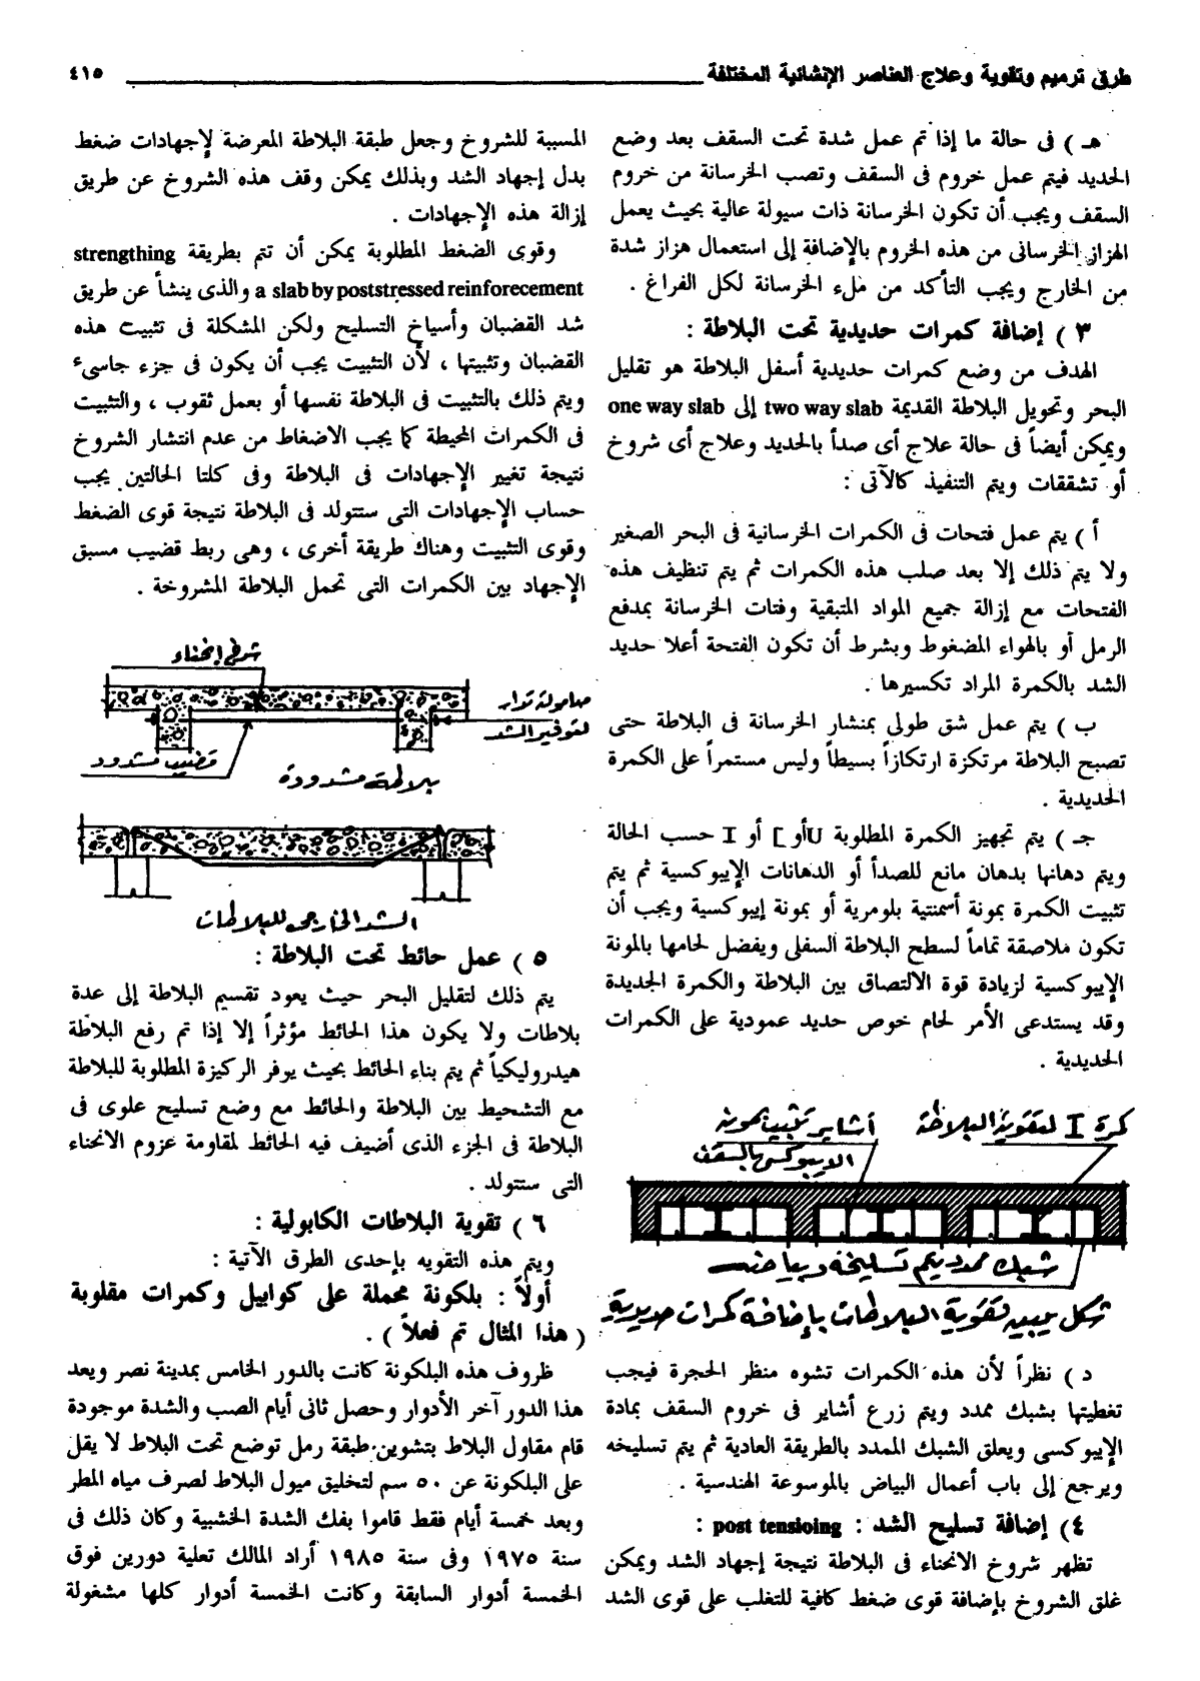 طرق ترميم وتقوية وعلاج العناصر الإنشائية المختلفة ٤١٥
هـ ) فى حالة ما إذا تم عمل شدة تحت السقف بعد وضع
الحديد فيتم عمل خروم فى السقف وتصب الخرسانة من خروم
السقف ويجب أن تكون الخرسانة ذات سيولة عالية بحيث يعمل
الهزاز الخرسانى من هذه الخروم بالإضافة إلى استعمال هزاز شدة
من الخارج ويجب التأكد من ملء الخرسانة لكل الفراغ .
٣ ) إضافة كمرات حديدية تحت البلاطة :
الهدف من وضع كمرات حديدية أسفل البلاطة هو تقليل
البحر وتحويل البلاطة القديمة two way slab إلى one way slab
ويمكن أيضاً فى حالة علاج أى صدأ بالحديد وعلاج أى شروخ
أو تشققات ويتم التنفيذ كالآتى :
أ ) يتم عمل فتحات فى الكمرات الخرسانية فى البحر الصغير
ولا يتم ذلك إلا بعد صلب هذه الكمرات ثم يتم تنظيف هذه
الفتحات مع إزالة جميع المواد المتبقية وفتات الخرسانة بمدفع
الرمل أو بالهواء المضغوط وبشرط أن تكون الفتحة أعلا حديد
الشد بالكمرة المراد تكسيرها .
ب ) يتم عمل شق طولى بمنشار الخرسانة فى البلاطة حتى
تصبح البلاطة مرتكزة ارتكازاً بسيطاً وليس مستمراً على الكمرة
الحديدية .
جـ ) يتم تجهيز الكمرة المطلوبة U أو [ أو I حسب الحالة
ويتم دهانها بدهان مانع للصدأ أو الدهانات الإيبوكسية ثم يتم
تثبيت الكمرة بمونة أسمنتية بلومرية أو بمونة إيبوكسية ويجب أن
تكون ملاصقة تماماً لسطح البلاطة السفلى ويفضل لحامها بالمونة
الإيبوكسية لزيادة قوة الالتصاق بين البلاطة والكمرة الجديدة
وقد يستدعى الأمر لحام خوص حديد عمودية على الكمرات
الحديدية .
كمرة I لتقوية البلاطة
أشاير تثبيت بمونة
الايبوكسى بالسقف
شبك ممدد يتم تسليخه وبياضه
شكل يبين تقوية البلاطات بإضافة كمرات حديدية
د ) نظراً لأن هذه الكمرات تشوه منظر الحجرة فيجب
تغطيتها بشبك ممدد ويتم زرع أشاير فى خروم السقف بمادة
الإيبوكسى ويعلق الشبك الممدد بالطريقة العادية ثم يتم تسليخه
ويرجع إلى باب أعمال البياض بالموسوعة الهندسية .
٤ ) إضافة تسليح الشد : post tensioing :
تظهر شروخ الانحناء فى البلاطة نتيجة إجهاد الشد ويمكن
غلق الشروخ بإضافة قوى ضغط كافية للتغلب على قوى الشد
المسببة للشروخ وجعل طبقة البلاطة المعرضة لإجهادات ضغط
بدل إجهاد الشد وبذلك يمكن وقف هذه الشروخ عن طريق
إزالة هذه الإجهادات .
وقوى الضغط المطلوبة يمكن أن تتم بطريقة strengthing
a slab by poststressed reinforecement والذى ينشأ عن طريق
شد القضبان وأسياخ التسليح ولكن المشكلة فى تثبيت هذه
القضبان وتثبيتها ، لأن التثبيت يجب أن يكون فى جزء جاسىء
ويتم ذلك بالتثبيت فى البلاطة نفسها أو بعمل ثقوب ، والتثبيت
فى الكمرات المحيطة كما يجب الاضغاط من عدم انتشار الشروخ
نتيجة تغيير الإجهادات فى البلاطة وفى كلتا الحالتين يجب
حساب الإجهادات التى ستتولد فى البلاطة نتيجة قوى الضغط
وقوى التثبيت وهناك طريقة أخرى ، وهى ربط قضيب مسبق
الإجهاد بين الكمرات التى تحمل البلاطة المشروخة .
شرخ إنحناء
صامولة تدار
لتوفير الشد
قضيب مشدود
بلاطة مشدودة
الشد الخارجى للبلاطات
٥ ) عمل حائط تحت البلاطة :
يتم ذلك لتقليل البحر حيث يعود تقسيم البلاطة إلى عدة
بلاطات ولا يكون هذا الحائط مؤثراً إلا إذا تم رفع البلاطة
هيدروليكياً ثم يتم بناء الحائط بحيث يوفر الركيزة المطلوبة للبلاطة
مع التشحيط بين البلاطة والحائط مع وضع تسليح علوى فى
البلاطة فى الجزء الذى أضيف فيه الحائط لمقاومة عزوم الانحناء
التى ستتولد .
٦ ) تقوية البلاطات الكابولية :
ويتم هذه التقويه بإحدى الطرق الآتية :
أولاً : بلكونة محملة على كوابيل وكمرات مقلوبة
( هذا المثال تم فعلاً ) .
ظروف هذه البلكونة كانت بالدور الخامس بمدينة نصر ويعد
هذا الدور آخر الأدوار وحصل ثانى أيام الصب والشدة موجودة
قام مقاول البلاط بتشوين طبقة رمل توضع تحت البلاط لا يقل
على البلكونة عن ٥٠ سم لتخليق ميول البلاط لصرف مياه المطر
وبعد خمسة أيام فقط قاموا بفك الشدة الخشبية وكان ذلك فى
سنة ١٩٧٥ وفى سنة ١٩٨٥ أراد المالك تعلية دورين فوق
الخمسة أدوار السابقة وكانت الخمسة أدوار كلها مشغولة